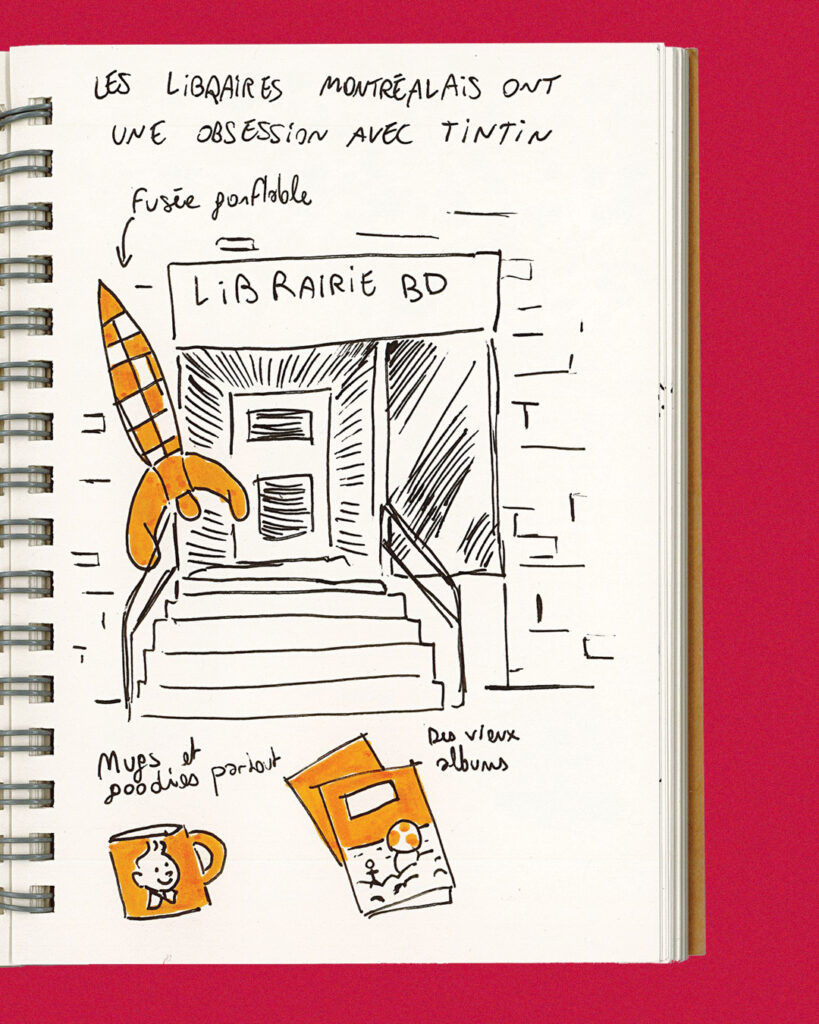 LES LIBRAIRES MONTRÉALAIS ONT
UNE OBSESSION AVEC TINTIN
Fusée gonflable
LIBRAIRIE BD
Mugs et
goodies partout
Des vieux
albums